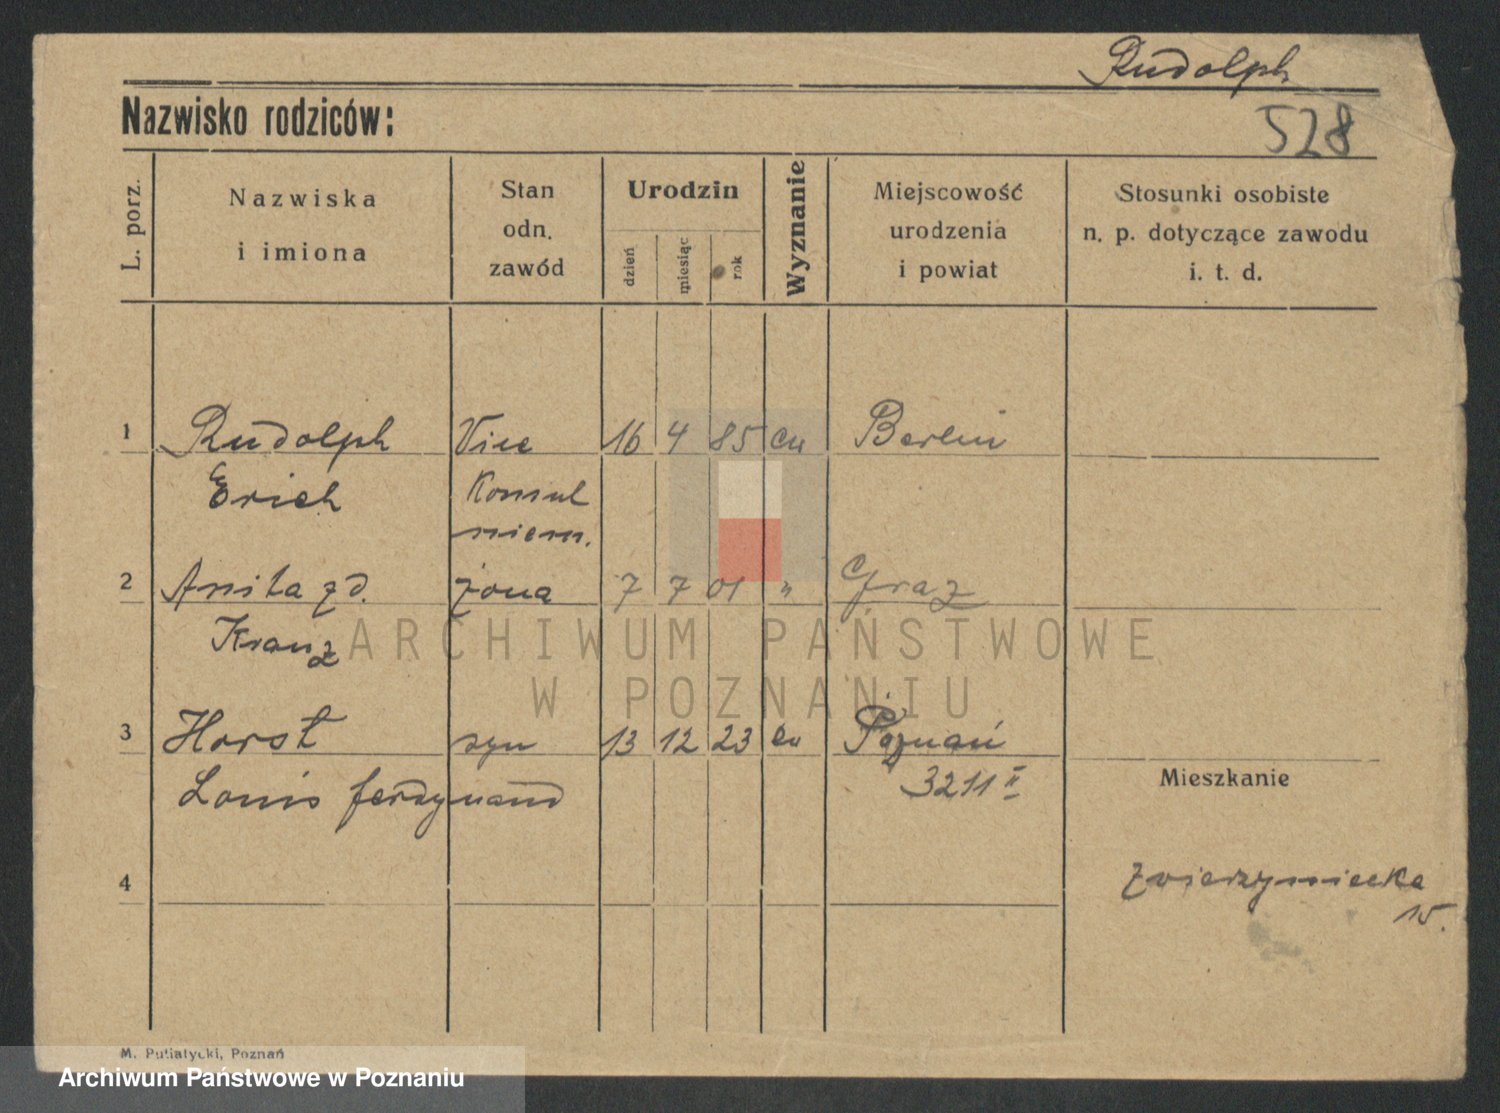 Rudolph
Nazwisko rodziców:
528
L. porz.
Nazwiska
i imiona
Stan
odn.
zawód
Urodzin
dzień
miesiąc
rok
Wyznanie
Miejscowość
urodzenia
i powiat
Stosunki osobiste
n. p. dotyczące zawodu
i. t. d.
1 Rudolph Vice 16 4 85 ew Berlin
Erich Konsul
niem.
2 Anita zd. żona 7 7 01 " Graz
Kranz
ARCHIWUM PAŃSTWOWE
W POZNANIU
3 Horst syn 13 12 23 ew Poznań
Louis ferdynand 3211 II
Mieszkanie
4
Zwierzyniecka
15.
M. Putiatycki, Poznań
Archiwum Państwowe w Poznaniu